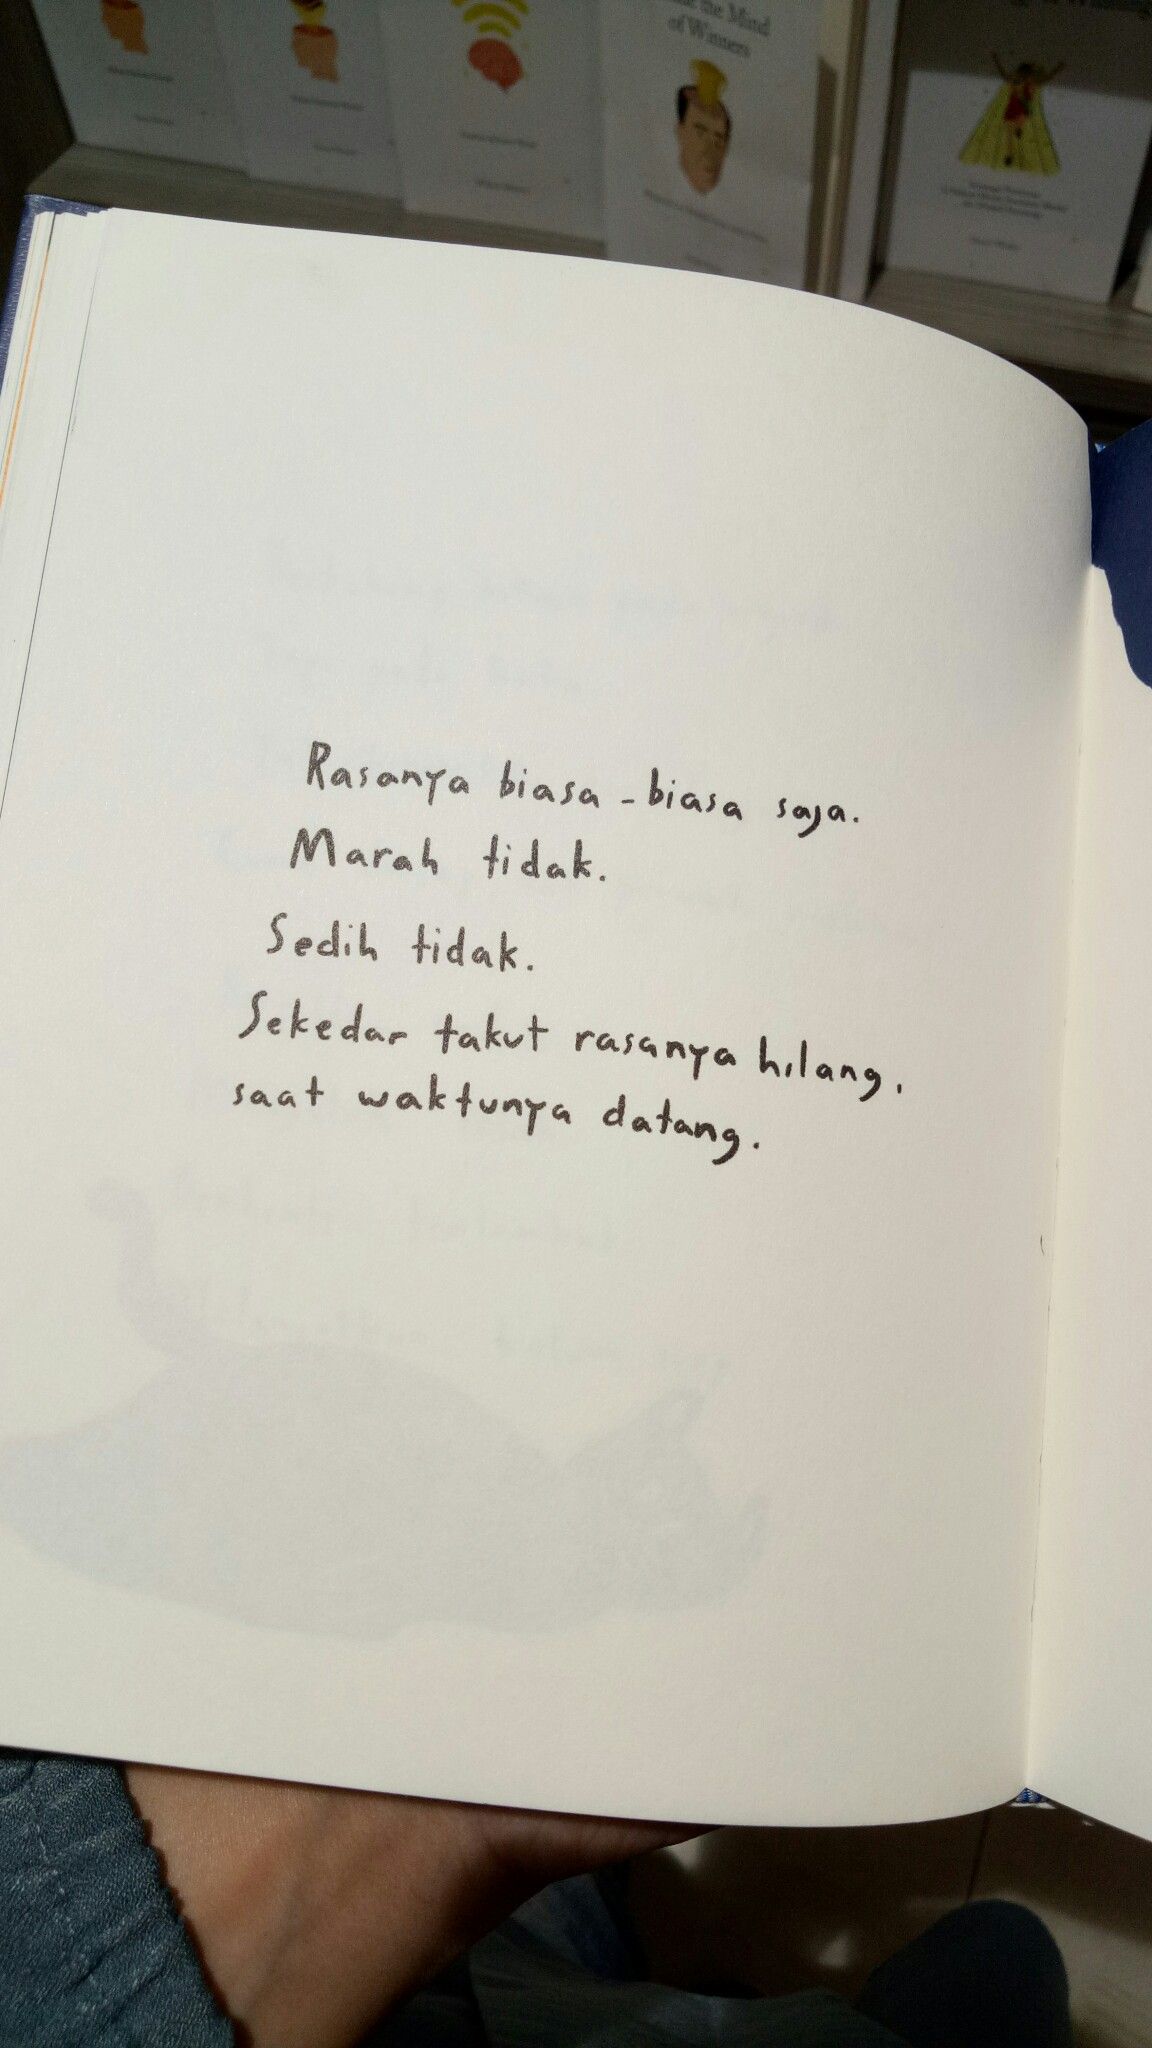 the Mind
of Winners
Rasanya biasa-biasa saja.
Marah tidak.
Sedih tidak.
Sekedar takut rasanya hilang,
saat waktunya datang.